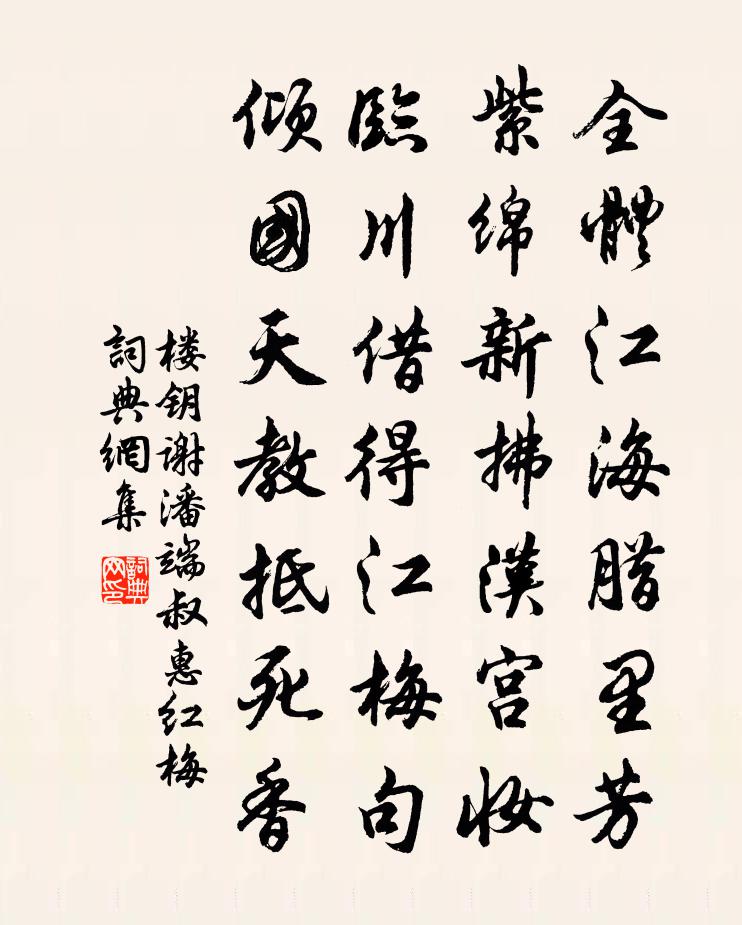 全體江海腊里芳
紫绵新拂漢宫妝
臨川借得江梅句
傾國天教抵死香
楼钥谢潘端叔惠红梅
詞典網集
詞典网印